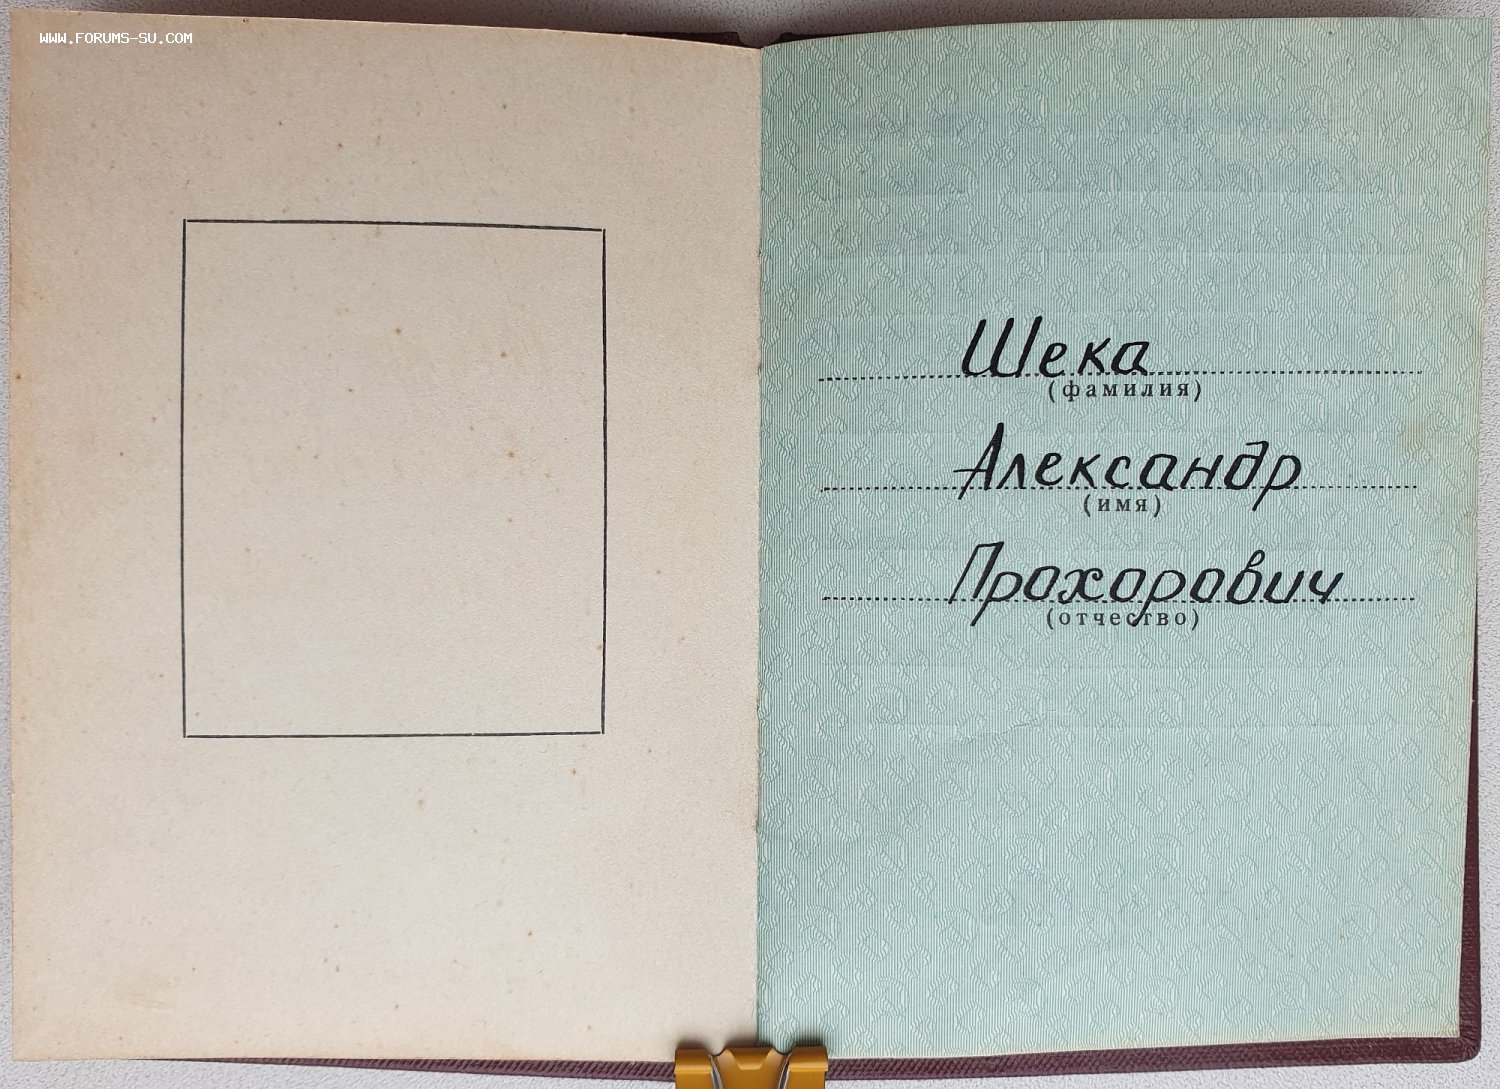 WWW.FORUMS-SU.COM
Шека
(фамилия)
Александр
(имя)
Прохорович
(отчество)